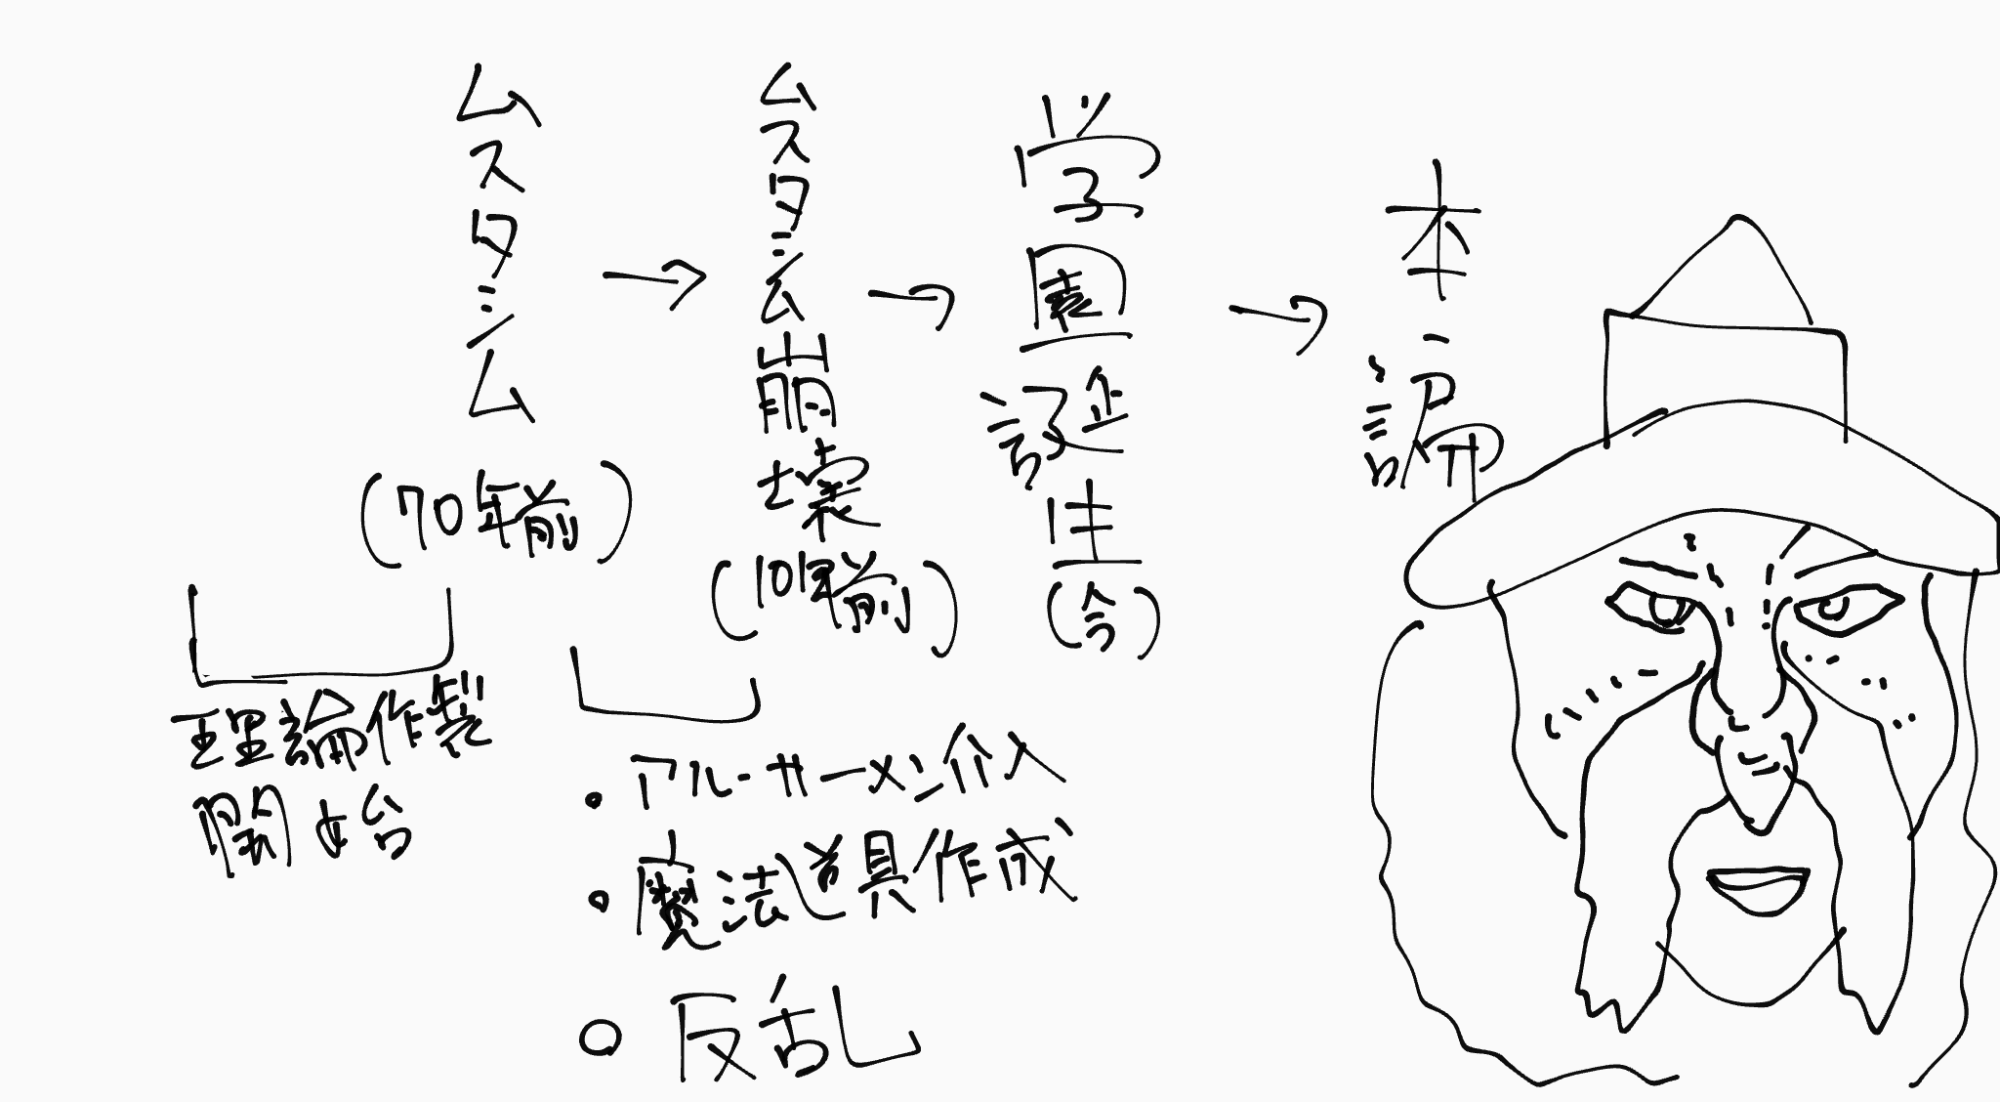 ムスタシム
(70年前)
ムスタシム崩壊
(10年前)
学園誕生
(今)
本論
理論作製
開始
・アルサーメン介入
・魔法道具作成
○反乱